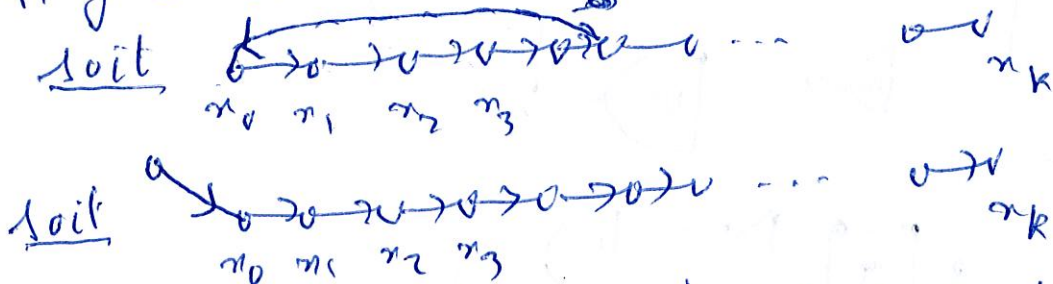 soit ...
x_0 x_1 x_2 x_3 x_k
soit ...
x_0 x_1 x_2 x_3 x_k